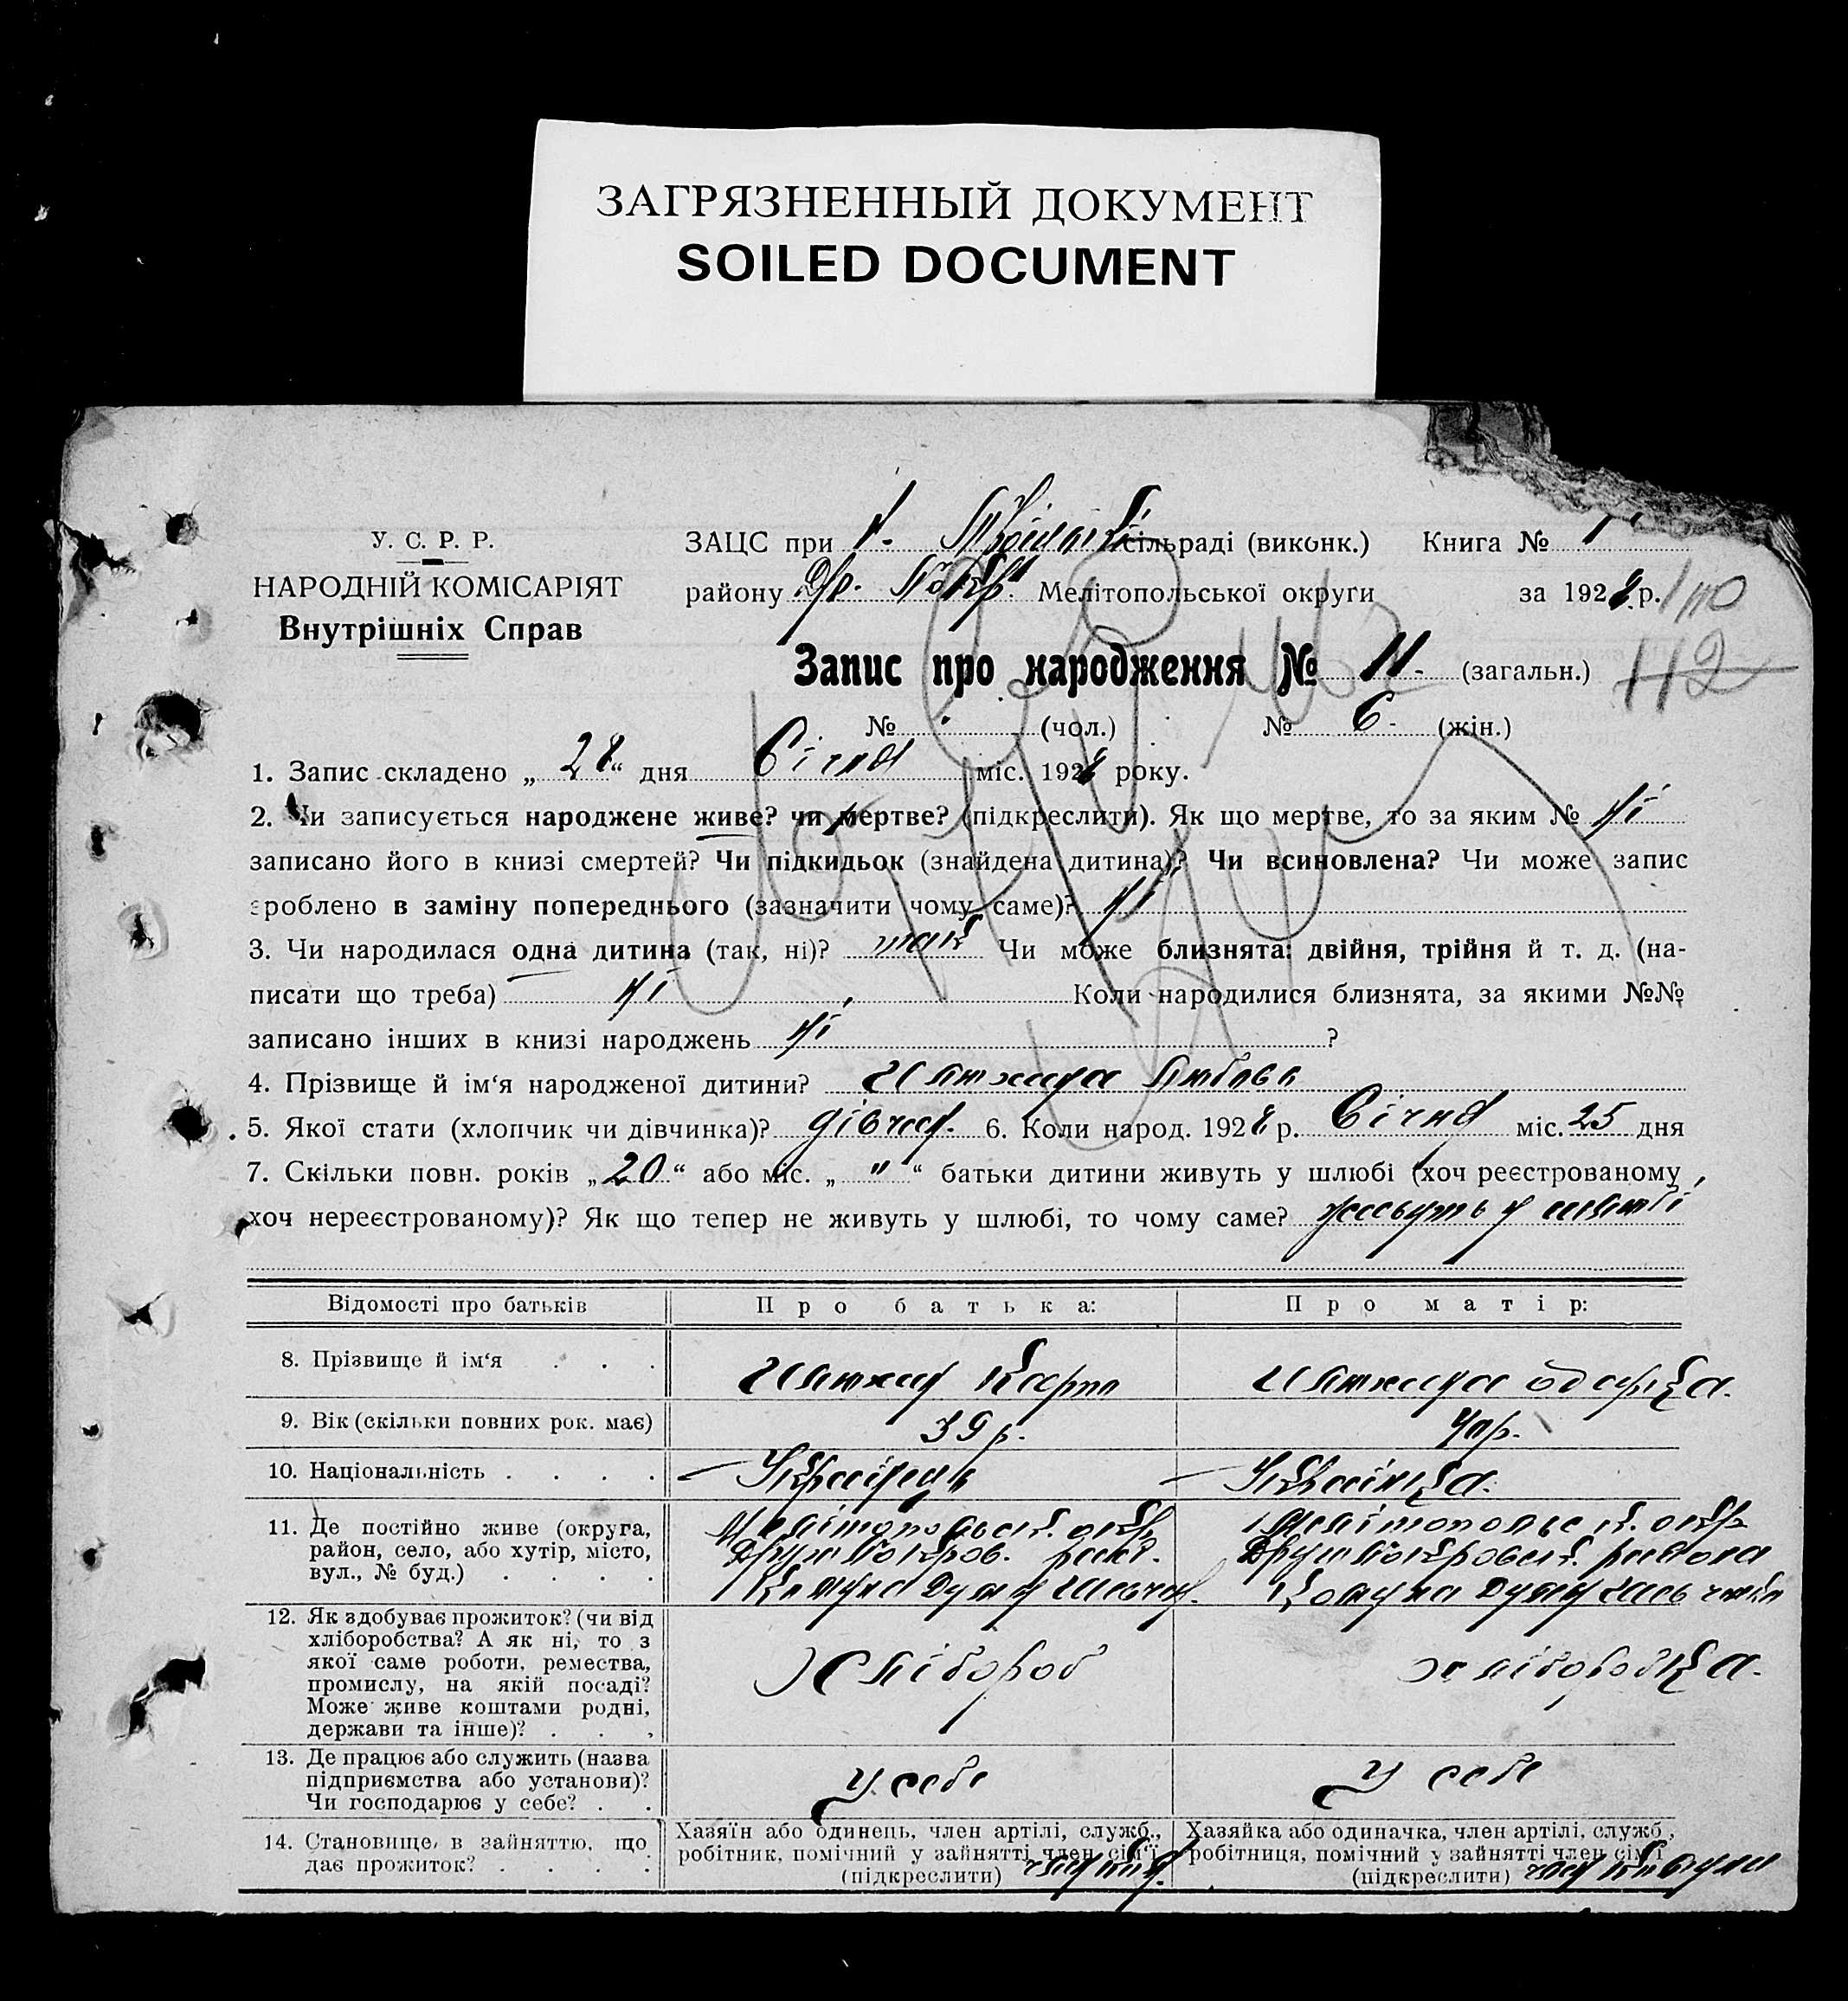 ЗАГРЯЗНЕННЫЙ ДОКУМЕНТ
SOILED DOCUMENT
У. С. Р. Р.
НАРОДНІЙ КОМІСАРІЯТ
Внутрішніх Справ
ЗАЦС при сільраді (виконк.) Книга № 1
району Др. Покр. Мелітопольської округи за 1928 р. 110
Запис про народження № 11 - (загальн.) 112
№ (чол.) № 6 - (жін.)
1. Запис складено „ 28 “ дня Січня міс. 1928 року.
2. Чи записується народжене живе? чи мертве? (підкреслити). Як що мертве, то за яким № ні
записано його в книзі смертей? Чи підкидьок (знайдена дитина)? Чи всиновлена? Чи може запис
зроблено в заміну попереднього (зазначити чому саме)? ні
3. Чи народилася одна дитина (так, ні)? так Чи може близнята: двійня, трійня й т. д. (на-
писати що треба) ні Коли народилися близнята, за якими №№
записано інших в книзі народжень ні ?
4. Прізвище й ім‘я народженої дитини? Любов
5. Якої стати (хлопчик чи дівчинка)? дівчин. 6. Коли народ. 1928 р. Січня міс. 25 дня
7. Скільки повн. років „ 20 “ або міс. „ " “ батьки дитини живуть у шлюбі (хоч реєстрованому,
хоч нереєстрованому)? Як що тепер не живуть у шлюбі, то чому саме? живуть у шлюбі
Відомості про батьків Про батька: Про матір:
8. Прізвище й ім‘я . . . Карпо Одарка.
9. Вік (скільки повних рок. має) 39 р. 40 р.
10. Національність . . . . Українець Українка.
11. Де постійно живе (округа, Мелітопольськ. окр. Мелітопольськ. окр
район, село, або хутір, місто, Друг Покров. райо. Друг Покровськ. района
вул., № буд.) . . . . Комуна Комуна
12. Як здобуває прожиток? (чи від
хліборобства? А як ні, то з
якої саме роботи, ремества, Хлібороб хліборобка.
промислу, на якій посаді?
Може живе коштами родні,
держави та інше)? . . .
13. Де працює або служить (назва
підприємства або установи)? У себе У себе
Чи господарює у себе? . .
14. Становище, в зайняттю, що Хазяїн або одинець, член артілі, служб., Хазяйка або одиначка, член артілі, служб.,
дає прожиток? . . . . робітник, помічний у зайнятті член сім‘ї робітниця, помічний у зайнятті член сім‘ї
(підкреслити) (підкреслити)